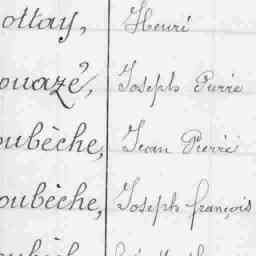 ottay, Henri
ouazé, Joseph Pierre
oubèche, Jean Pierre
oubèche, Joseph françois